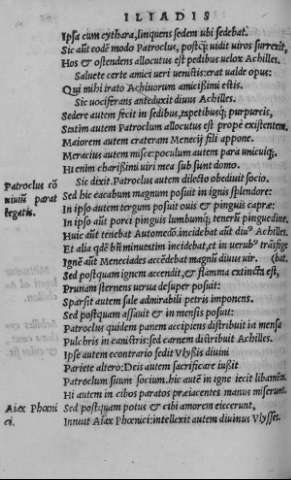 ILIADIS
Ipsa cum cythara, linquens sedem ubi sedebat.
Sic aūt eodē modo Patroclus, postq̄ uidit uiros surrexit,
Hos & ostendens allocutus est pedibus uelox Achilles.
Saluete certe amici ueri uenistis: erat ualde opus:
Qui mihi irato Achiuorum amicissimi estis.
Sic uociferans anteduxit diuus Achilles.
Sedere autem fecit in sedibus, tapetibusq; purpureis,
Statim autem Patroclum allocutus est prope existentem.
Maiorem autem crateram Menecij fili appone.
Meracius autem misce: poculum autem para unicuiq;.
Hi enim charissimi uiri mea sub sunt domo.
Sic dixit. Patroclus autem dilecto obediuit socio.
Patroclus cō
niuiū parat
legatis.
Sed hic cacabum magnum posuit in ignis splendore:
In ipso autem tergum posuit ouis & pinguis caprae:
In ipso aūt porci pinguis lumbumq; tenerū pinguedine.
Huic aūt tenebat Automedō. incidebat aūt diuꝰ Achilles.
Et alia qdē bn̄ minutatim incidebat, et in uerubꝰ trāsfige
Ignē aūt Meneciades accēdebat magnū diuus uir. (bat.
Sed postquam ignem accendit, & flamma extincta est,
Prunam sternens uerua desuper posuit:
Sparsit autem sale admirabili petris imponens.
Sed postquam assauit & in mensis posuit:
Patroclus quidem panem accipiens distribuit in mensa
Pulchris in canistris: sed carnem distribuit Achilles.
Ipse autem econtrario sedit Vlyssis diuini
Pariete altero: Deis autem sacrificare iussit
Patroclum suum socium. hic autē in igne iecit libamēn.
Hi autem in cibos paratos praeiacentes manus miserunt.
Sed postquam potus & cibi amorem eiecerunt,
Aiax Phœni
ci.
Innuit Aiax Phœnici: intellexit autem diuinus Vlysses.